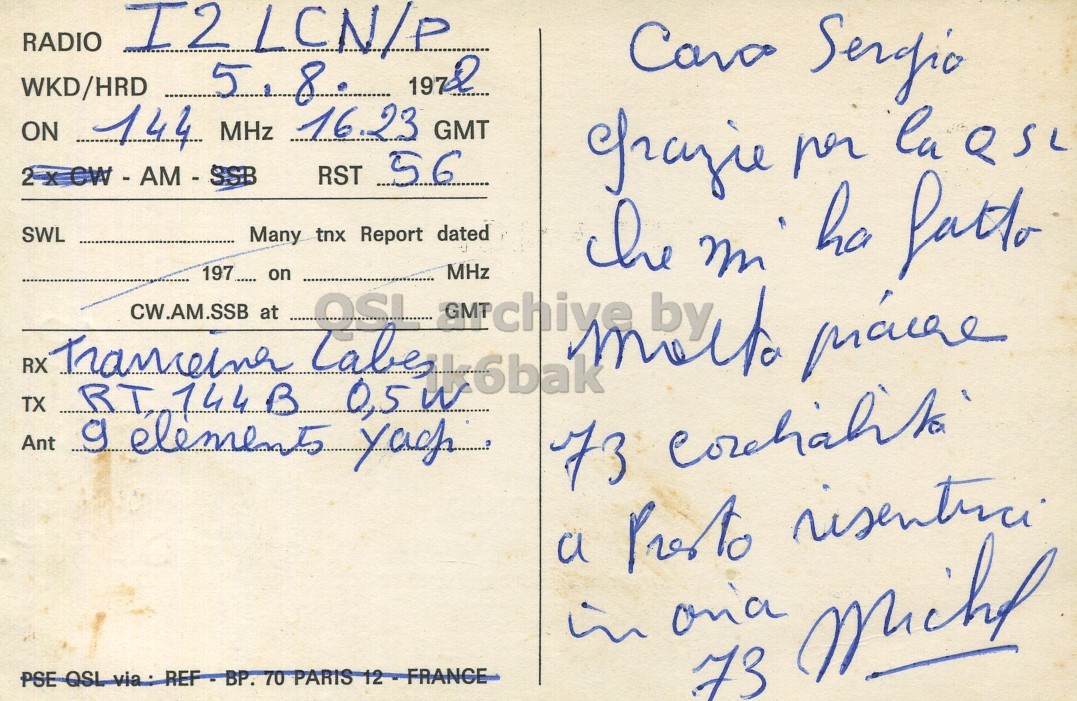 RADIO I2LCN/P
WKD/HRD 5.8. 1972
ON 144 MHz 16.23 GMT
2 x CW - AM - SSB RST 56
SWL Many tnx Report dated
197 on MHz
CW.AM.SSB at GMT
RX Labes
TX RT 144B 0,5W
Ant 9 eléments Yagi.
PSE QSL via : REF - BP. 70 PARIS 12 - FRANCE
Caro Sergio
Grazie per la QSL
che mi ha fatto
molto piacere
73 cordialità
a Presto risentirci
in aria Michel
73
QSL archive by
ik6bak